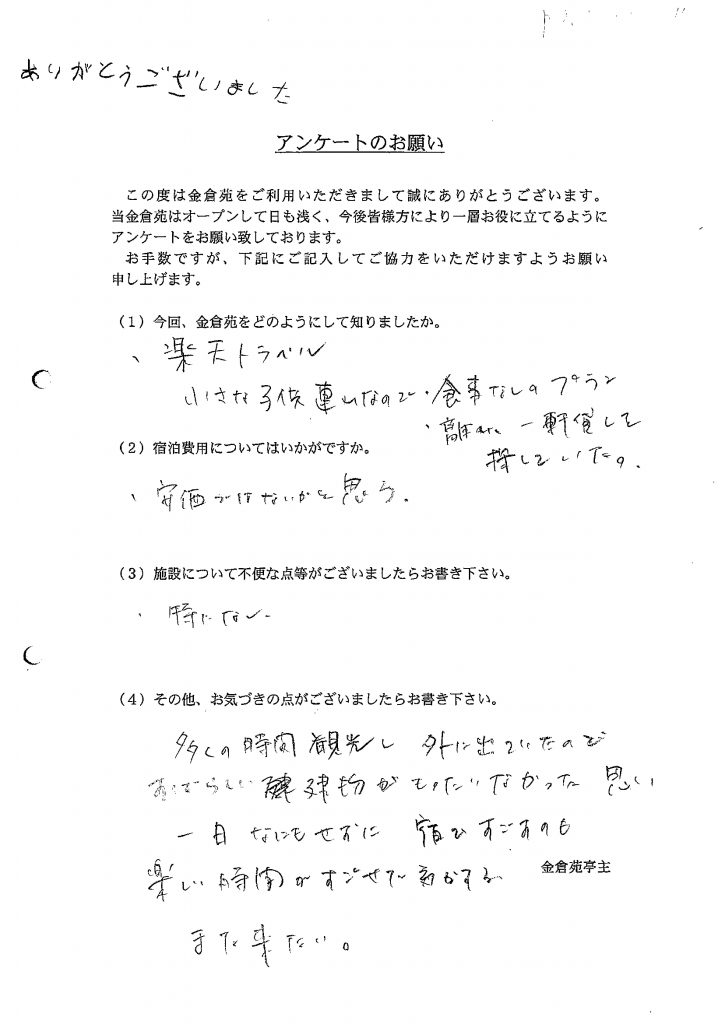 ありがとうございました
アンケートのお願い
この度は金倉苑をご利用いただきまして誠にありがとうございます。
当金倉苑はオープンして日も浅く、今後皆様方により一層お役に立てるように
アンケートをお願い致しております。
お手数ですが、下記にご記入してご協力をいただけますようお願い
申し上げます。
（1）今回、金倉苑をどのようにして知りましたか。
、楽天トラベル
小さな子供連れなので・食事なしのプラン
・離れ 一軒貸しで
探していた。
（2）宿泊費用についてはいかがですか。
、安価ではないかと思う。
（3）施設について不便な点等がございましたらお書き下さい。
、特にない
（4）その他、お気づきの点がございましたらお書き下さい。
多くの時間観光し外に出ていたので
すばらしい建物がもったいなかった 思い
一日なにもせずに宿ですごすのも
楽しい時間がすごせて 気がする
金倉苑亭主
また来たい。